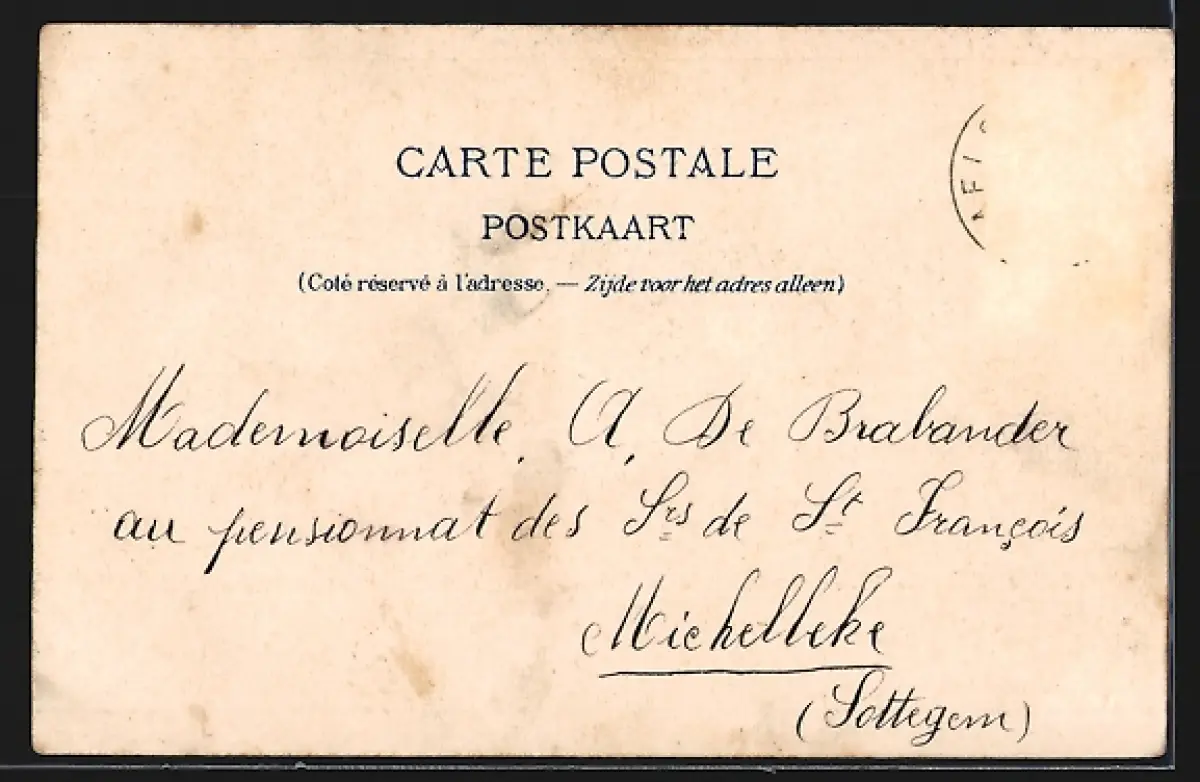 CARTE POSTALE
POSTKAART
(Coté réservé à l'adresse. — Zijde voor het adres alleen)
Mademoiselle, A, De Brabander
au pensionnat des Srs de St François
Michelbeke
(Sottegem)